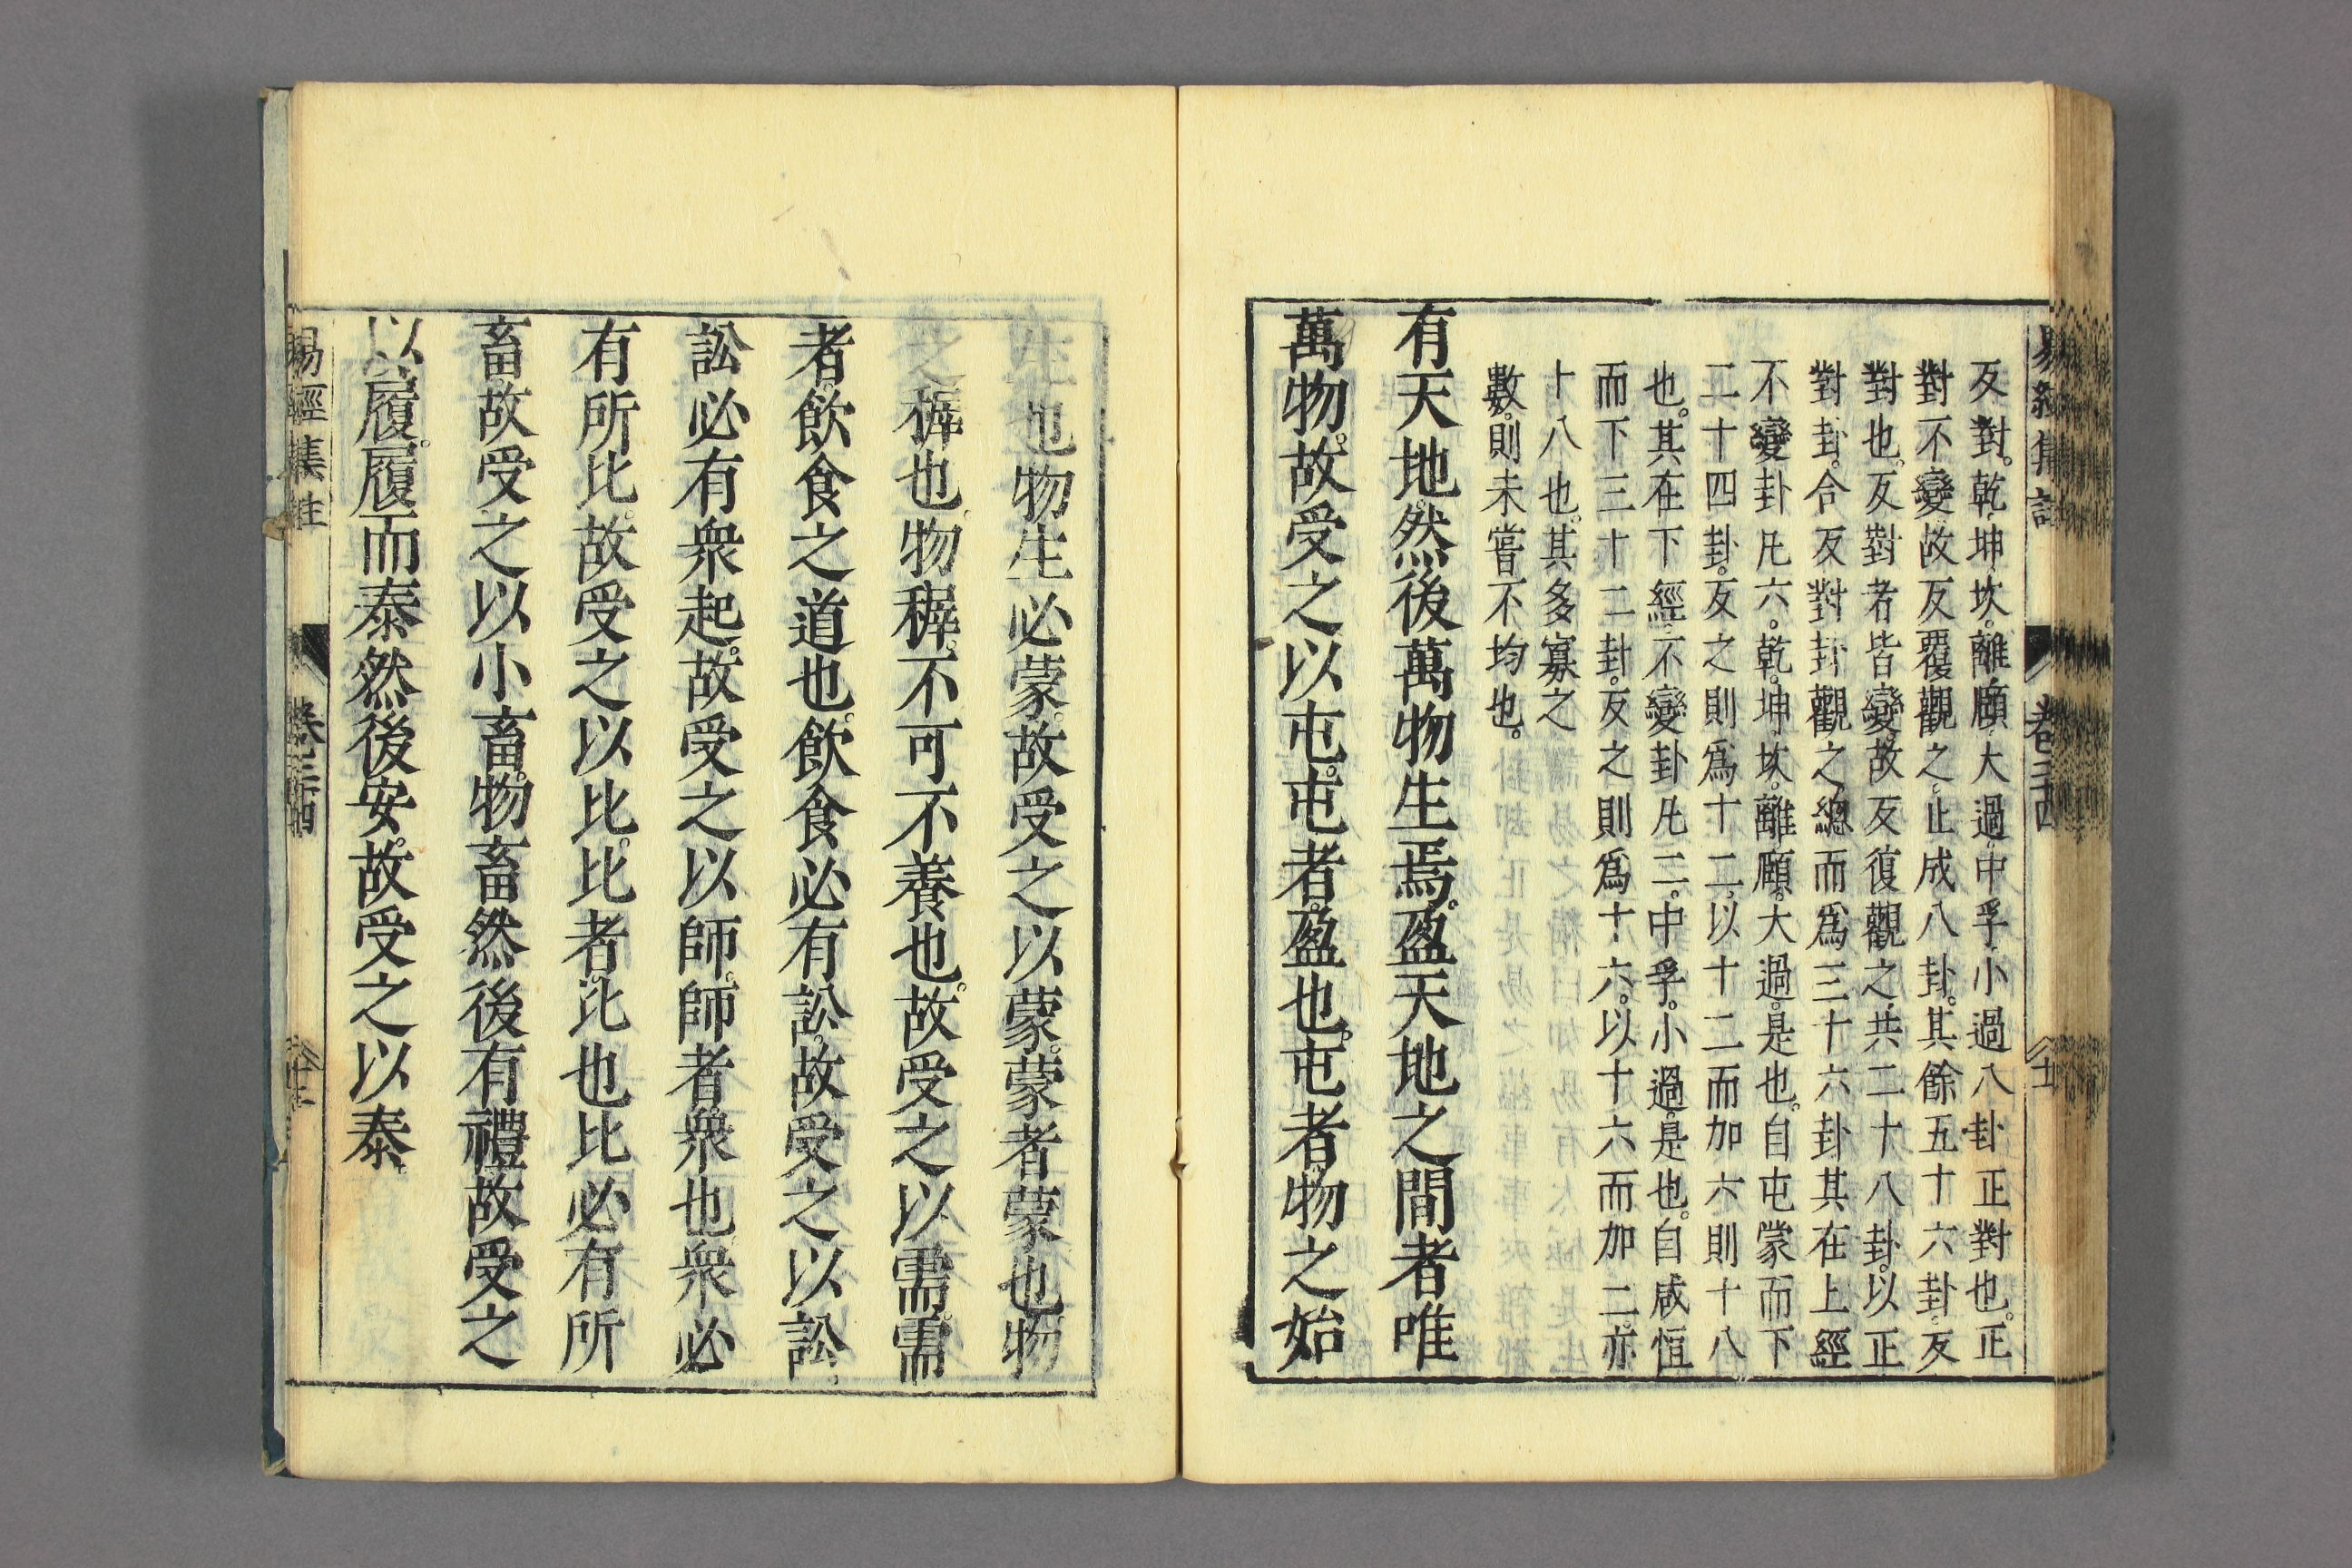 反對。乾坤坎。離頤大過中孚小過八卦正對也。正
對不變故反覆觀之。止成八卦。其餘五十六卦反
對也。反對者皆變。故反復觀之。共二十八卦。以正
對卦。合反對卦觀之總而爲三十六卦其在上經
不變卦凡六。乾。坤坎。離。頤。大過。是也。自屯蒙而下
二十四卦。反之則爲十二。以十二而加六則十八
也。其在下經。不變卦凡二。中孚。小過。是也。自咸恒
而下三十二卦。反之則爲十六。以十六而加二。亦
十八也。其多寡之
數。則未嘗不均也。
有天地。然後萬物生焉。盈天地之間者唯
萬物。故受之以屯。屯者。盈也。屯者物之始
生也物生必蒙。故受之以蒙。蒙者蒙也物
之穉也。物穉。不可不養也。故受之以需。需
者。飲食之道也。飲食必有訟。故受之以訟。
訟必有衆起。故受之以師。師者衆也衆必
有所比。故受之以比。比者。比也比必有所
畜。故受之以小畜。物畜然後有禮。故受之
以履。履而泰然後安。故受之以泰。
易經集註
卷二十四
十二